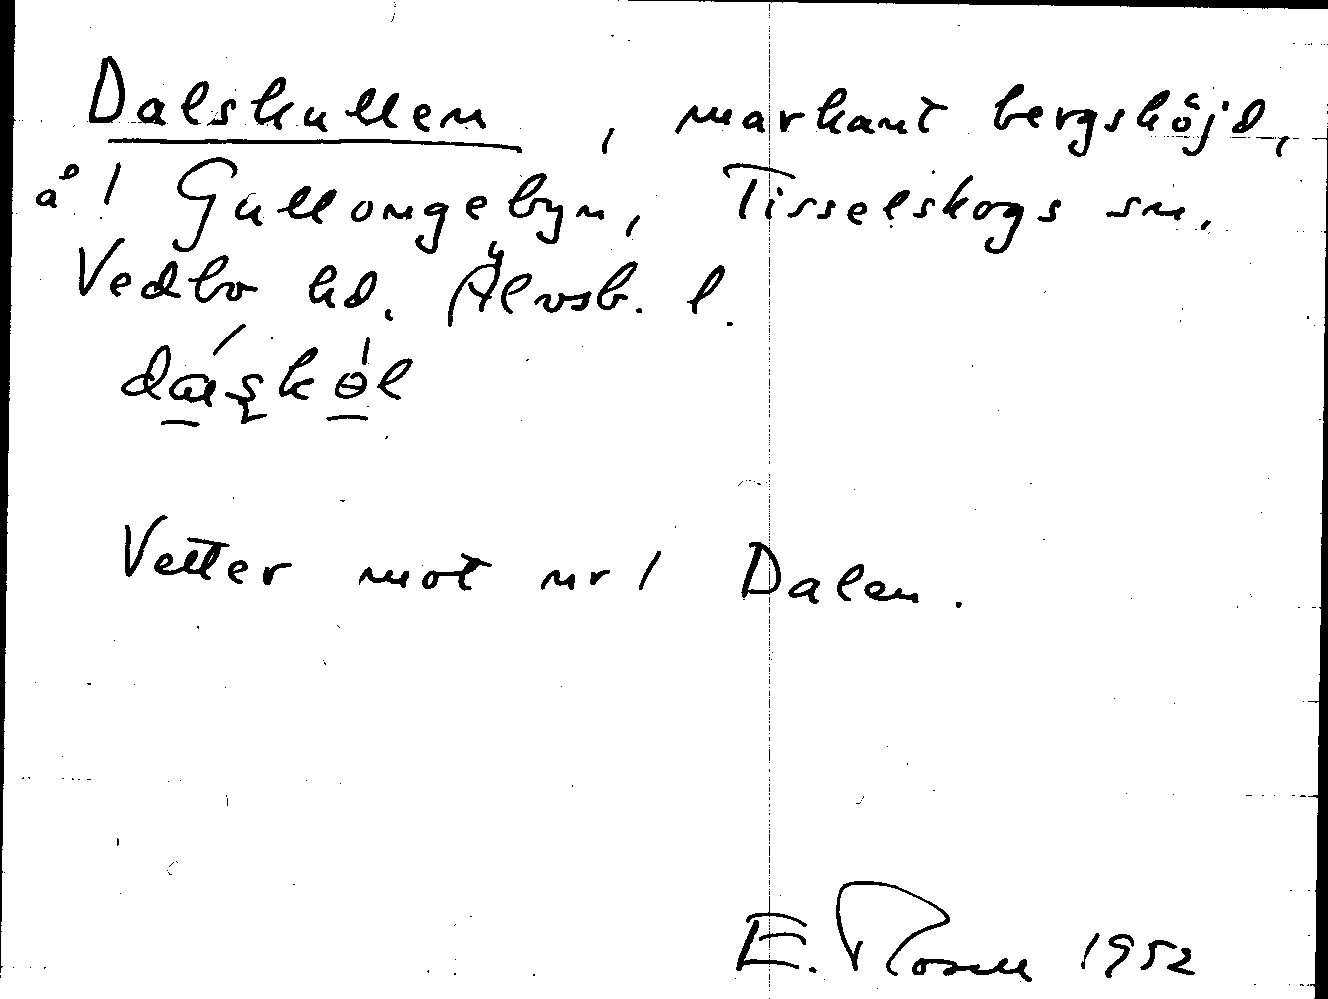 Dalskullen, markant bergshöjd,
å 1 Gullongebyn, Tisselskogs sn,
Vedbo hd. Älvsb. l.
Vetter mot nr 1 Dalen.
E. Rosell 1952